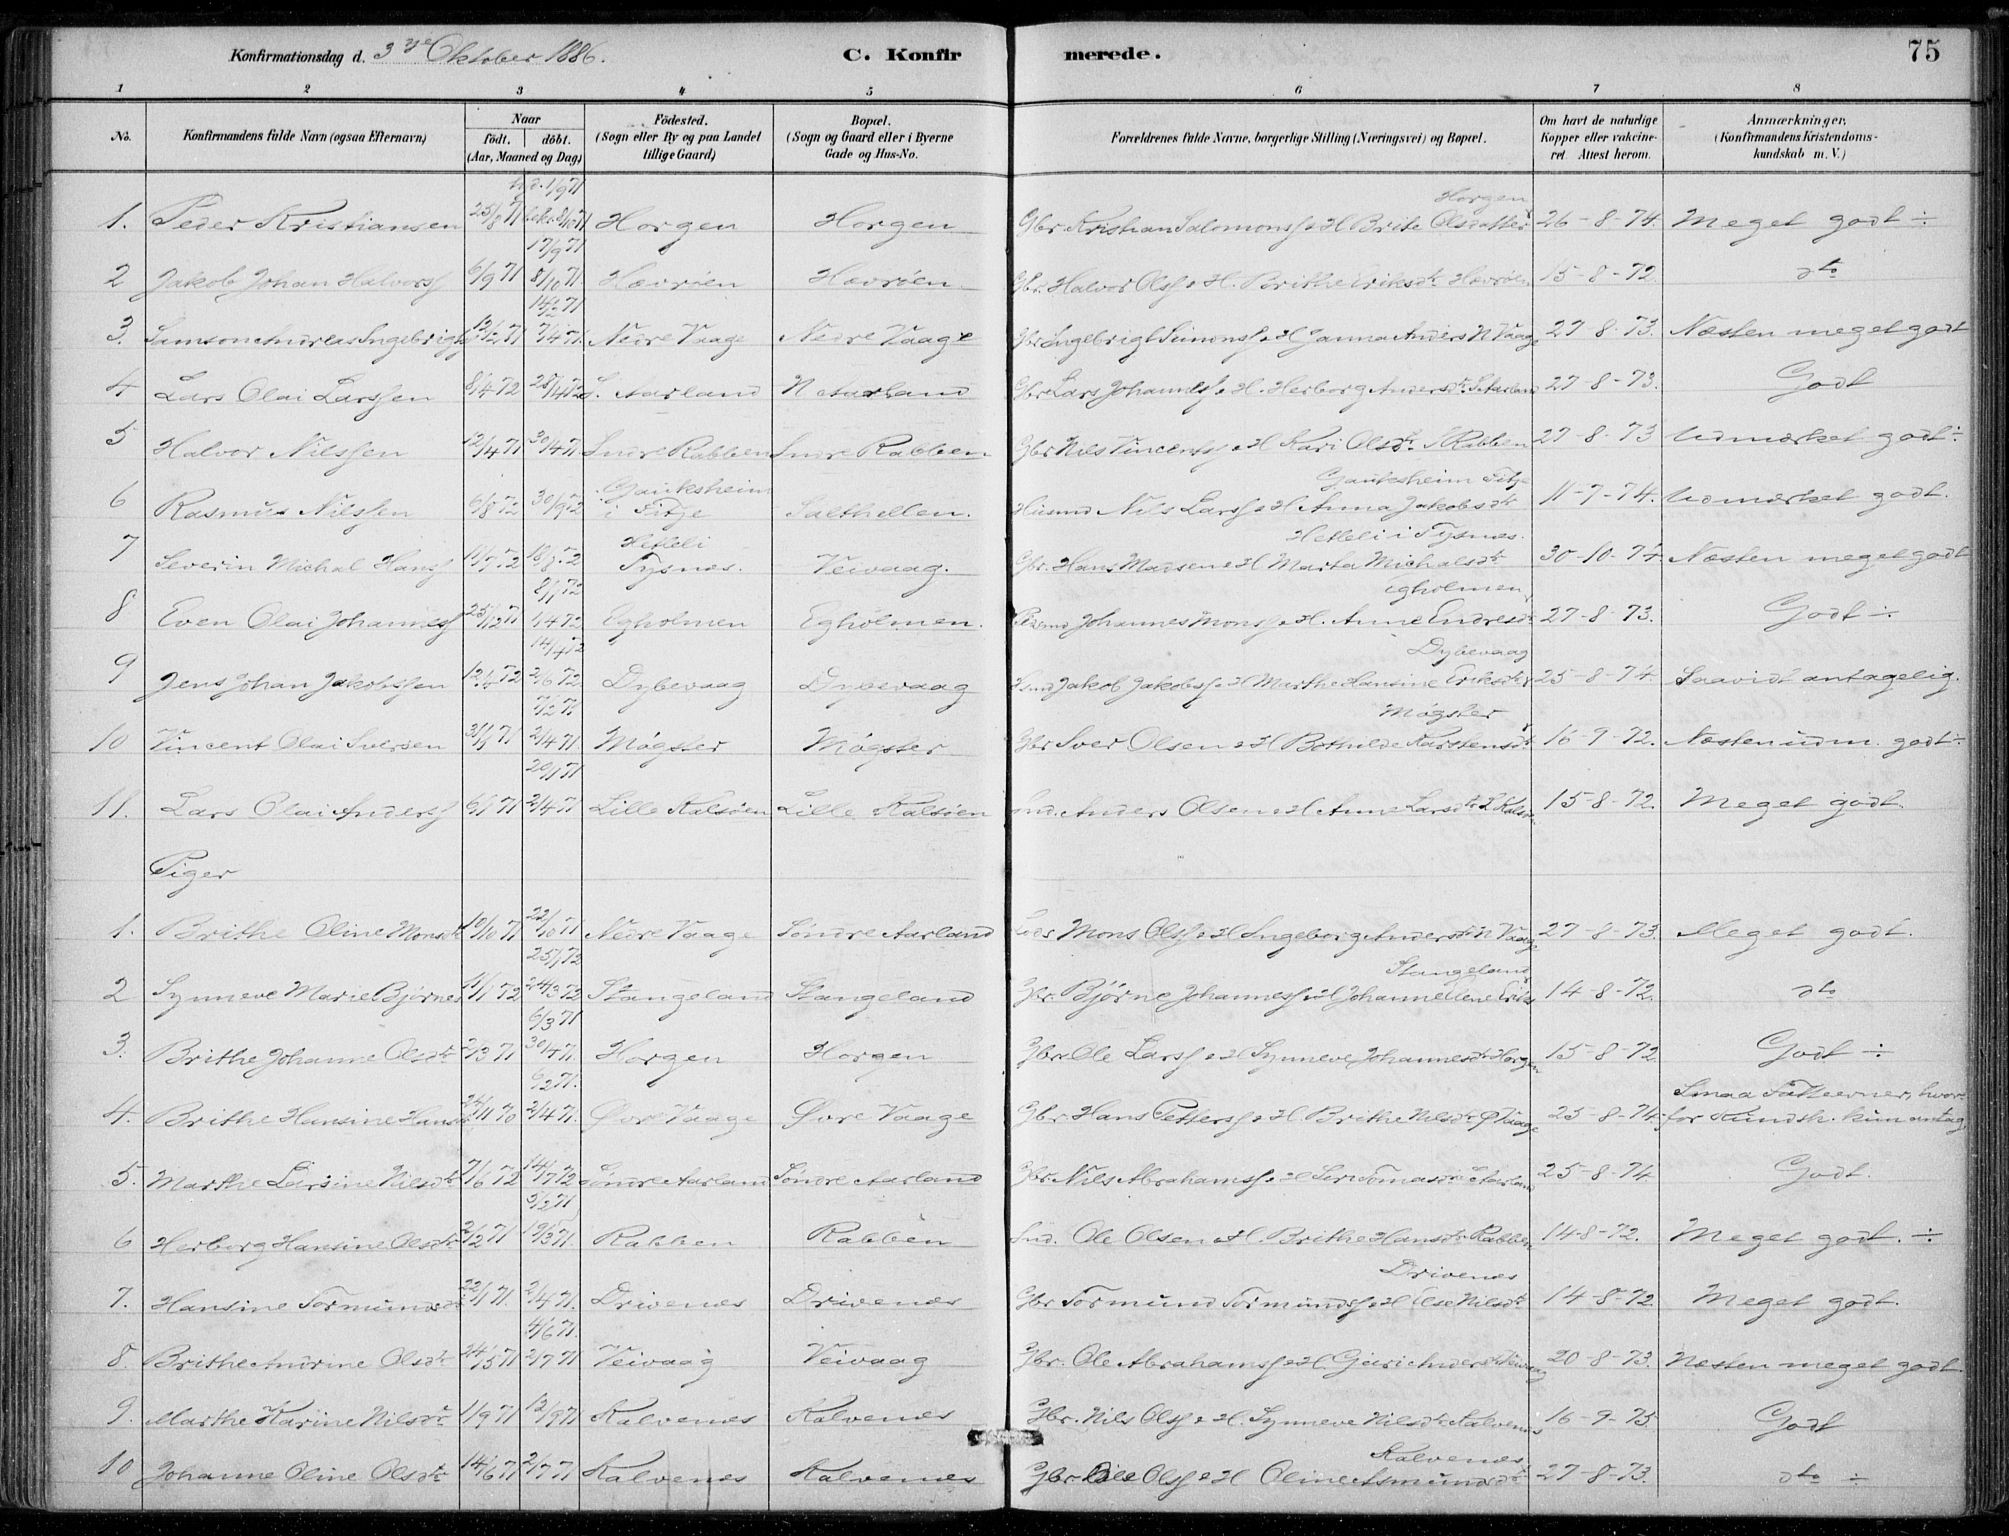 Konfirmationsdag d. 3die Oktober 1886.
C. Konfirmerede.
75
1 2 3 4 5 6 7 8
No. Konfirmandens fulde Navn (ogsaa Efternavn) Naar født. døbt. (Aar, Maaned og Dag) Fødested. (Sogn eller By og paa Landet tillige Gaard) Bopæl. (Sogn og Gaard eller i Byerne Gade og Hus-No. Forældrenes fulde Navne, borgerlige Stilling (Næringsvei) og Bopæl. Om havt de naturlige Kopper eller vakcineret Attest herom. Anmærkninger. (Konfirmandens Kristendomskundskab m. V.)
1. Peder Kristiansen 25/8 71 1/9 71 8/10 71 Horgen Horgen Gbr. Kristian Salomons. & H Brite Olsdatter Horgen 26-8-74. Meget godt ÷
2 Jakob Johan Halvors. 6/9 71 17/9 71 8/10 71. Hævrøen Hævrøen. Gbr. Halvor Ols. & H. Brithe Eriksdtr Hævrøen 15-8-72. dto
3. Simson Andreas Ingebrigts. 12/2 71 14/2 71 7/4 71. Nedre Vaage Nedre Vaage Gbr Ingebrigt Simons. & H Janna Anders N Vaage 27-8-73. Næsten meget godt
4 Lars Olai Larssen 8/4 72 28/4 72 S. Aarland N Aarland Gbr Lars Johannes. & H. Herborg Andersdtr S Aarland 27-8-73. Godt
5 Halvor Nilssen 12/4 71 30/4 71. Sndre Rabben Sndre Rabben Gbr Nils Vincents. & H Kari Olsdtr S Rabben 27-8-73 Udmærket godt ÷
6 Rasmus Nilssen 6/8 72 30/9 72 Gauksheim i Fitje Salthellen. Husmd Nils Lars. & H Anna Jakobsdtr Gauksheim Fitje 11-7-74. Udmærket godt.
7 Severin Michal Hans. 11/7 72 18/8 72 Hetleli Tysnes. Veivaag. Gbr. Hans Madsen & H Marta Michalsdtr Hetleli i Tysnes. 30-10-74. Næsten meget godt
8 Even Olai Johannes. 25/12 71 2/1 72 1/4 72 Egholmen Egholmen. Johannes Mons. & H. Anne Endresdtr Egholmen 27-8-73. Godt ÷
9 Jens Johan Jakobssen 12/4 72 14/4 72 2/6 72 Dybevaag Dybevaag Jakob Jakobs. & H Marthe Hansine Eriksdtr Dybevaag 25-8-74. Saavidt antagelig.
10 Vincent Olai Sversen 30/1 71 7/2 71 2/4 71. Møgster Møgster Gbr Sver Olsen & H Bothilde Karstensdtr Møgster 16-9-72. Næsten udm. godt ÷
11. Lars Olai Anders. 6/1 71 20/1 71 2/4 71 Lille Kalsøen Lille Kalsøen Anders Olsen & H Anne Larsdtr L Kalsøen 15-8-72. Meget godt.
Piger
1. Brithe Oline Monsdtr 10/10 71 22/10 71 Nedre Vaage Søndre Aarland Mons Ols. & H Ingeborg Andersdtr N Vaage 27-8-73. Meget godt.
2 Synneve Marie Bjørnes 11/1 72 25/1 72 24/3 72 Stangeland Stangeland Gbr. Bjørne Johannes. & H Johanne Lene Eriks Stangeland 14-8-72. dto
3. Brithe Johanne Olsdtr 2/3 71 6/3 71 30/4 71. Horgen Horgen Gbr. Ole Lars. & H Synneve Johannesdtr Horgen 15-8-72 Godt ÷
4. Brithe Hansine Hansdtr 24/11 70 6/2 71. 2/4 71. Øvre Vaage Øvre Vaage Gbr. Hans Petters. & H Brithe Nilsdtr Ø Vaage 25-8-74. Smaa Fatteevner, hvorfor Kundsk. kun antag
5. Marthe Larsine Nilsdtr 7/6 72 14/7 72 Søndre Aarland Søndre Aarland Gbr. Nils Abrahams. & H Siri Tomasdtr S Aarland 25-8-74 Godt.
6 Herborg Hansine Olsdtr 2/2 71 9/2 71 19/3 71. Rabben Rabben Ole Olsen & H. Brithe Hansdtr Rabben 14-8-72. Meget godt. ÷
7. Hansine Tormundsdtr 22/1 71. 2/4 71. Drivenes Drivenes Gbr Tormund Tormunds. & H Else Nilsdtr Drivenes 14-8-72. Meget godt.
8. Brithe Andrine Olsdtr 24/5 71 4/6 71. 2/7 71 Veivaag Veivaag Gbr. Ole Abrahams. & H. Guri Andersdtr Veivaag 20-8-73. Næsten meget godt.
9. Marthe Karine Nilsdtr 1/9 71 12/9 71 Kalvenes Kalvenes Gbr. Nils Ols. & H. Synneve Nilsdtr Kalvenes 16-9-75 Godt
10 Johanne Oline Olsdtr 14/6 71 2/7 71 Kalvenes Kalvenes Gbr. Ole Ols. & H Oline Asmundsdtr Kalvenes 27-8-73. dto ÷